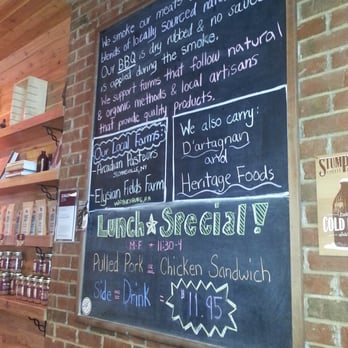 We smoke our meats
blends of locally sourced
Our BBQ is dry rubbed & no sauce
is applied during the smoke.
We support farms that follow natural
& organic methods & local artisans
that provide quality products.
Our Local Farms:
- Arcadian Pastures
- Elysian Fields Farm
We also carry:
D'artagnan
and
Heritage Foods
Lunch Special!
M-F 11:30-4
Pulled Pork Chicken Sandwich
Side Drink $11.95
STUMP
COLD